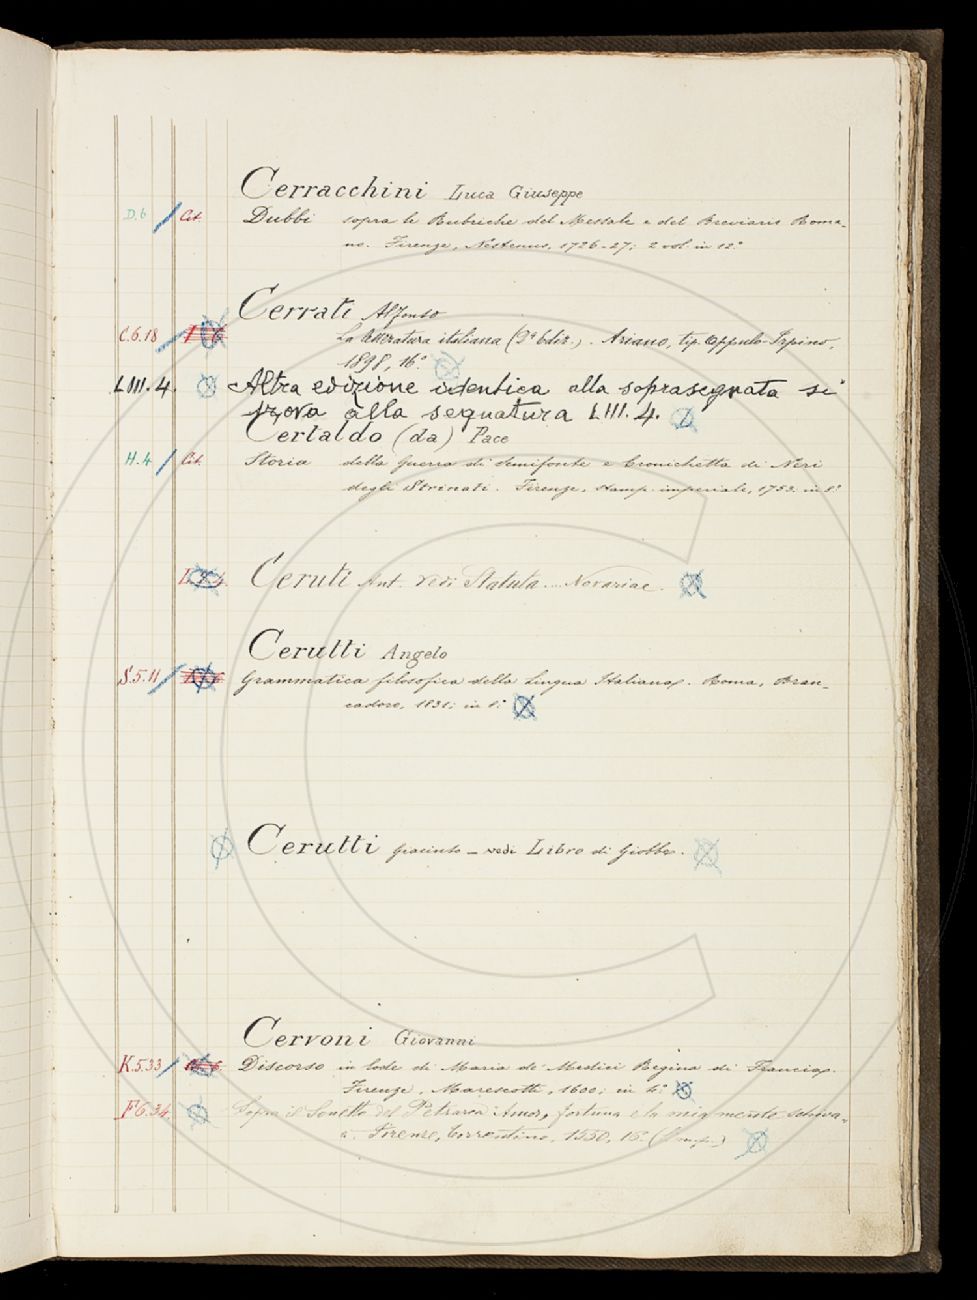 Cerracchini Luca Giuseppe
D.6 Cit. Dubbi sopra le Rubriche del Messale e del Breviario Roma-
no. Firenze, Nestenus, 1726-27; 2 vol. in 12°
Cerrati Alfonso
C.6.18 La letteratura italiana (2ª Ediz.). Ariano, tip. Appulo-Irpino,
1898, 16°
LIII.4. Altra edizione identica alla soprasegnata si
trova alla segnatura LIII.4.
Certaldo (da) Pace
H.4 Cit. Storia della Guerra di Semifonte e Cronichetta di Neri
degli Strinati. Firenze, stamp. imperiale, 1753. in 8°
Ceruti Ant. vedi Statuta... Novariae.
Cerutti Angelo
S.5.11 Grammatica filosofica della Lingua Italiana. Roma, Bran-
cadoro, 1831; in 8°
Cerutti Giacinto - vedi Libro di Giobbe.
Cervoni Giovanni
K.5.33 Discorso in lode di Maria de' Medici Regina di Francia.
Firenze, Marescotti, 1600; in 4°
F.6.34. Sopra il Sonetto del Petrarca: Amor, fortuna e la mia mente schiva-
a. Firenze, Torrentino, 1550, 16°